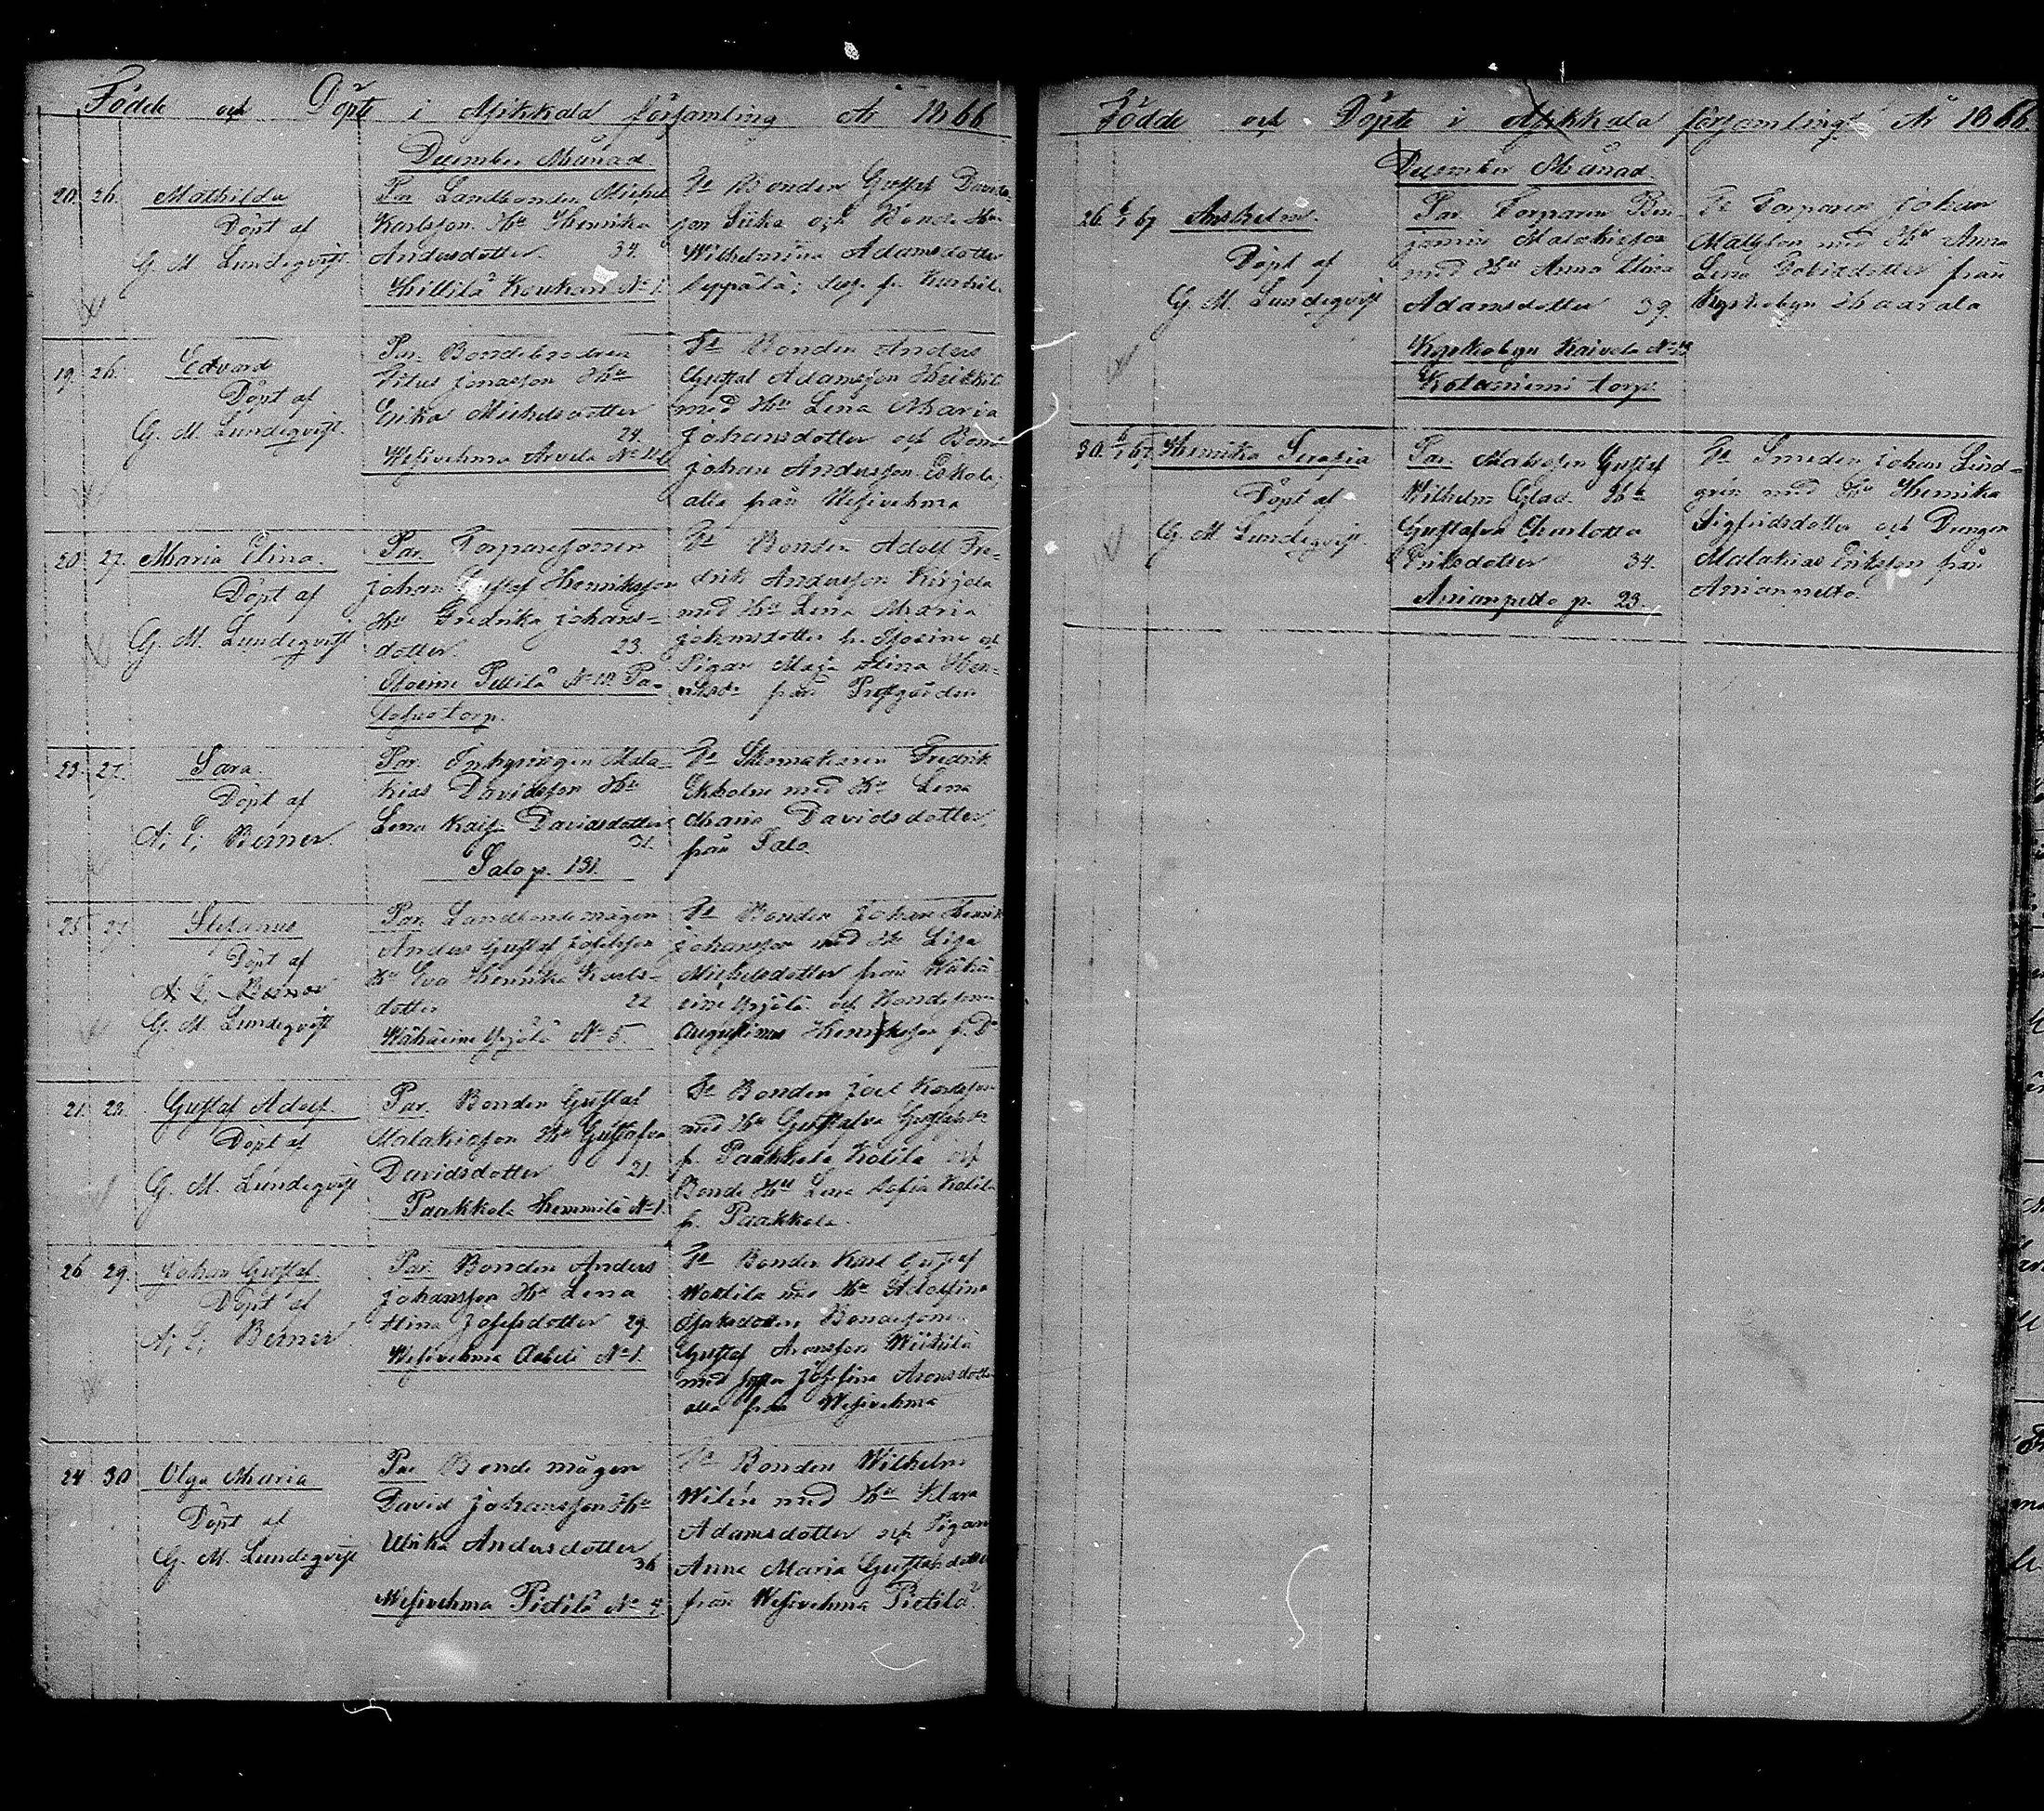 Födde och Döpte i Asikkala församling År 1866
December Månad.
20. 26. Mathilda
Döpt af
G. M. Lundeqvist
Par Landbonden Michel
Karlsson Hu Henrika
Andersdotter 34.
Hillilä Koukari No 1.
Ft Bonden Gustaf Davids-
son och Bonde Hu
Wilhelmina Adamsdotter
Seppälä;
19. 26. Edvard
Döpt af
G. M. Lundeqvist.
Par. Bondebrodren
Vitus Jonasson Hu
Erika Michelsdotter
24.
Wesivehma Arvela No
Ft Bonden Anders
Gustaf Adamsson Heikkilä
med Hu Lena Maria
Johansdotter och Bond
Johan Andersson Eskola;
alla från Wesivehma
20 27. Maria Stina.
Döpt af
G. M. Lundeqvist
Par Torparesonen
Johan Gustaf Henriksson
Hu Fredrika Johans-
dotter. 23.
Pa-
torp.
Ft Bonden Adolf Fre-
drik Andersson Kirjola
med Hu Lena Maria
Johansdotter fr. och
Pigan Maja Stina Hen-
riksdr från Prestgården
23. 27. Sara.
Döpt af
A. L. Berner.
Par. Inhysingen Mala-
kias Davidsson Hu
Lena Kaisa Davidsdotter
31.
Salo p. 131.
Ft Skomakaren Fredrik
Ekholm med Hu Lena
Maria Davidsdotter
från Salo.
25. 27. Stefanus
Döpt af
A. L. Berner
G. M. Lundeqvist
Par. Landbondemågen
Anders Gustaf Josefsson
Hu Eva Henrika Karls-
dotter 22
Wähäeine Yrjölä No 5.
Ft Bonden Johan Henrik
Johansson med Hu Lisa
Michelsdotter från Wähä-
eine Yrjölä och Bondesonen
Augustinus Henriksson f. Do
21. 28. Gustaf Adolf.
Döpt af
G. M. Lundeqvist
Par. Bonden Gustaf
Malakiasson Hu Gustafva
Davidsdotter 21.
Paakkola Hemmilä No 1.
Ft Bonden Joel Karlsson
med Hu Gustafva Gustafsdr
f. Paakkola Kolila och
Bonde Hu Lena Sofia Kolila
fr. Paakkola.
26 29. Johan Gustaf
Döpt af
A. L. Berner
Par. Bonden Anders
Johansson Hu Lena
Stina Josefsdotter 29.
Wesivehma No 1.
Ft Bonden Karl Gustaf
med Hu Adolfina
Bondesonen
Gustaf Aronsson
med Josefina Aronsdotter
alla från Wesivehma
24 30 Olga Maria
Döpt af
G. M. Lundeqvist
Par Bondemågen
David Johansson Hu
Ulrika Andersdotter
36
Wesivehma Pietilä No 4.
Ft Bonden Wilhelm
Wilén med Hu Klara
Adamsdotter och Pigan
Anna Maria Gustafsdotter
från Wesivehma Pietilä.
Födde och Döpte i Asikkala församling År 1866.
December Månad.
26. 6/1 67 Anshelm.
Döpt af
G. M. Lundeqvist
Par. Torparen Ben-
jamin Malakiasson
med Hu Anna Stina
Adamsdotter 39.
Kyrkobyn Kaivola No 13
Kotaniemi torp.
Ft Torparen Johan
Mattsson med Hu Anna
Lena Davidsdotter från
Kyrkobyn Haarala
30. 6/1 67. Henrika Serafia
Döpt af
G. M. Lundeqvist.
Par. Gustaf
Wilhelm Glad Hu
Gustafva Charlotta
Eriksdotter 34.
Anianpelto p. 23.
Ft Smeden Johan Lind-
grén med Hu Henrika
Sigfridsdotter och Drengen
Malakias Eriksson från
Anianpelto.